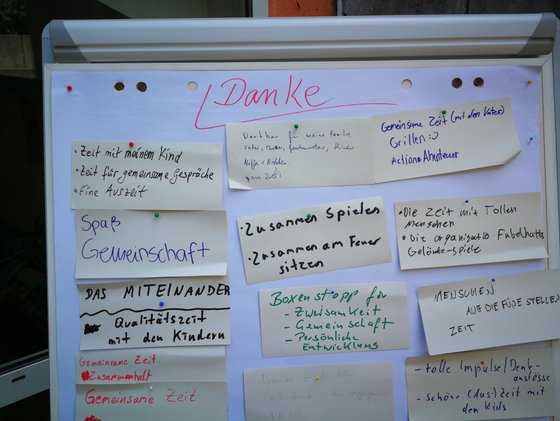 Danke
Dankbar für meine Familie
Vater, Mutter, Geschwister, Kinder
Gemeinsame Zeit (mit den Vätern)
Grillen :)
Action + Abenteuer
• Zeit mit meinem Kind
• Zeit für gemeinsame Gespräche
• Eine Auszeit
Spaß
Gemeinschaft
• Zusammen Spielen
• Zusammen am Feuer
sitzen
• Die Zeit mit Tollen
Menschen
• Die organisierte Fabelhafte
Gelände-spiele
DAS MITEINANDER
Qualitätszeit
mit den Kindern
Boxenstopp für
- Zweisamkeit
- Gemeinschaft
- Persönliche
Entwicklung
MENSCHEN
AUF DIE FÜßE STELLEN
ZEIT
Gemeinsame Zeit
Zusammenhalt
Gemeinsame Zeit
- tolle Impulse/Denk-
anstösse
- schöne (Aus-)Zeit mit
den Kids